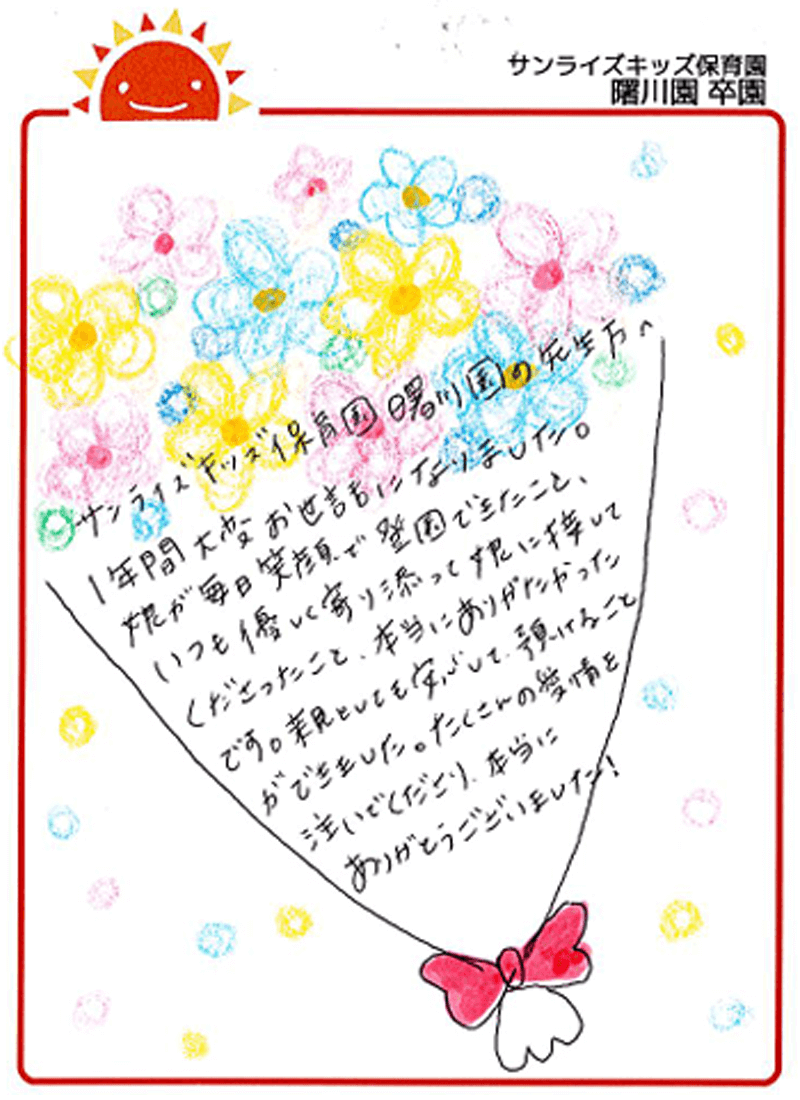 サンライズキッズ保育園
曙川園 卒園
サンライズキッズ保育園 曙川園の先生方へ
1年間大変お世話になりました。
娘が毎日笑顔で登園できたこと、
いつも優しく寄り添って娘に接して
くださったこと、本当にありがたかった
です。親としても安心して、預けること
ができました。たくさんの愛情を
注いでくださり、本当に
ありがとうございました!